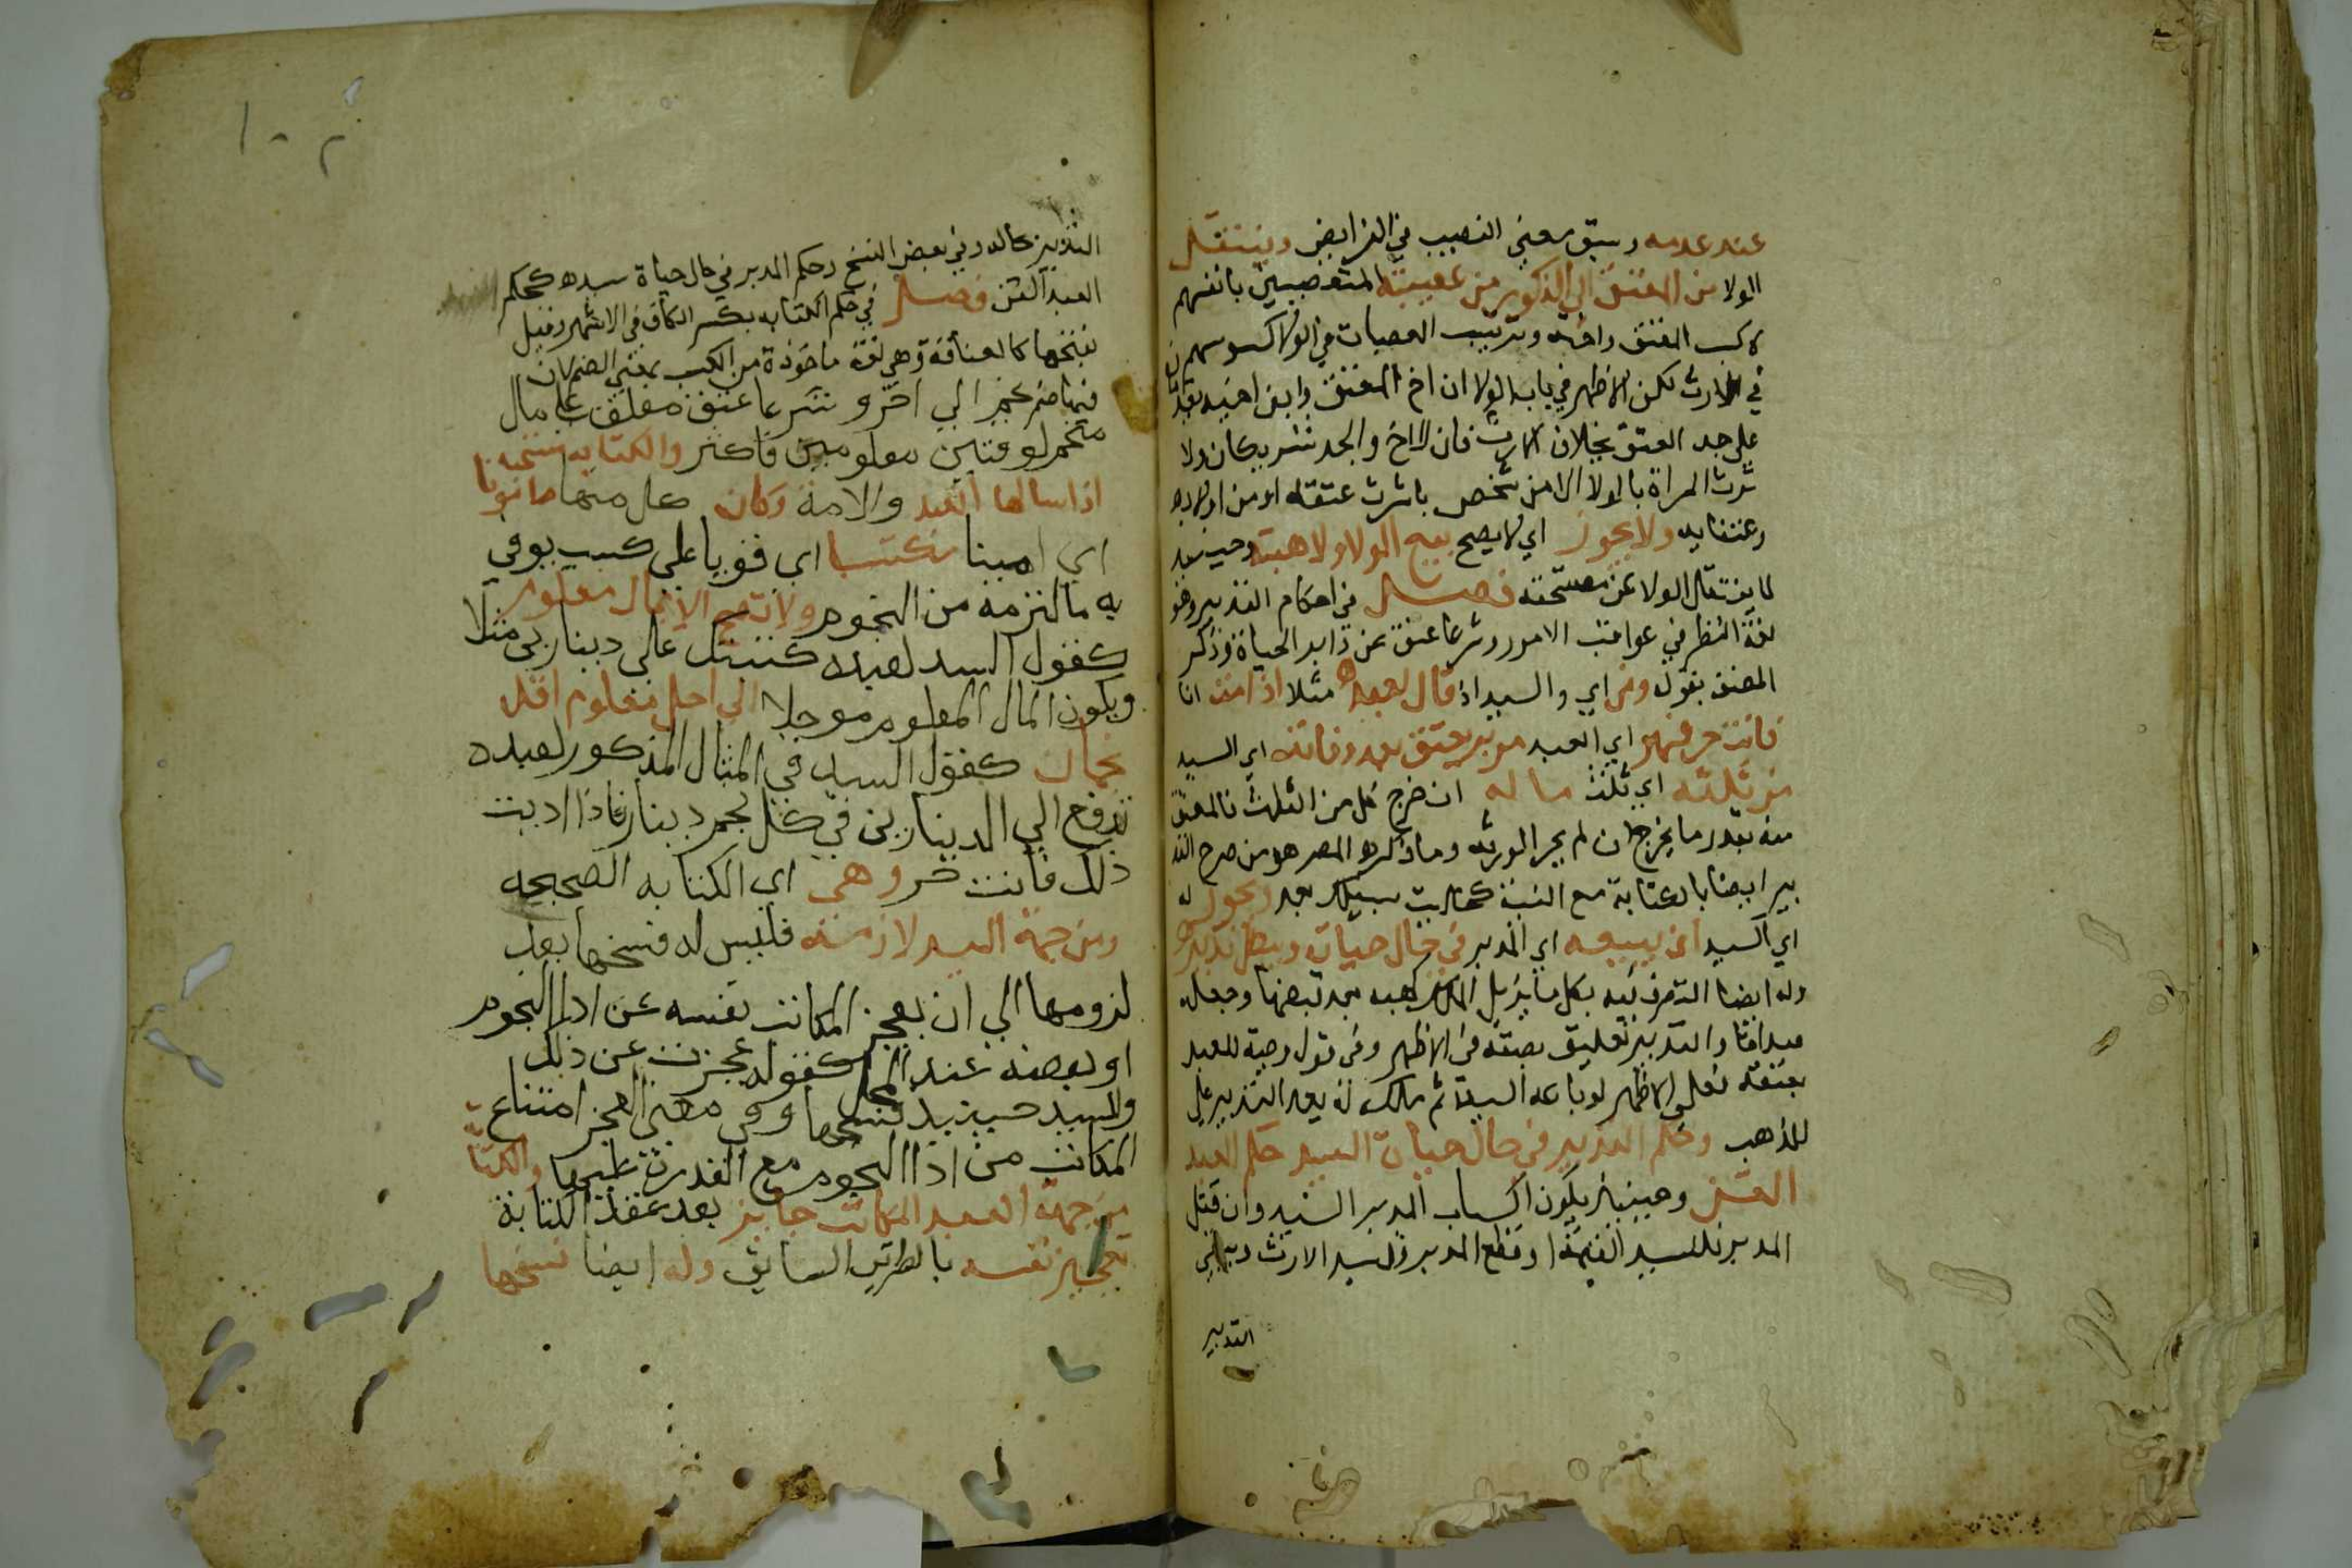 عند عدمه وسبق معني التعصيب في الفرايض وينتقل
الولا من المعتق الي الذكور من عصبته المتعصبين بانفسهم
لا كبنت المعتق واخته وترتيب العصبات في الولا كترتيبهم
في الارث لكن الاظهر في باب الولا ان اخ المعتق وابن اخيه يقدمان
علي جد المعتق بخلاف الارث فان الاخ والجد شريكان ولا
ترث المراة بالولا الا من شخص باشرت عتقه او من اولاده
وعتقايه ولا يجوز اي لا يصح بيع الولا ولا هبته وحينيذ
لا ينتقل الولا عن مستحقه فصل في احكام التدبير وهو
لغة النظر في عواقب الامور وشرعا عتق عن دابر الحياة وذكر
المصنف بقوله ومن اي والسيد اذا قال لعبده مثلا اذا مت انا
فانت حر فهو اي العبد مدبر يعتق بعد وفاته اي السيد
من ثلثه اي ثلث ماله ان خرج كل من الثلث فالمعتق
منه بقدر ما يخرج ان لم يجز الورثه وما ذكره المص هو من صريح التد
بير ايضا بالكتابة مع النية كخليت سبيلك بعد ويجوز له
اي السيد ان يبيعه اي المدبر في حال حياته ويبطل تدبيره
وله ايضا التصرف فيه بكل ما يزيل الملك كهبه بعد قبضها وجعله
صداقا والتدبير تعليق بصفة في الاظهر وفي قول وصية للعبد
بعتقه فعلي الاظهر لو باعه السيد ثم ملكه لم يعد التدبير علي
المذهب وحكم المدبر في حال حياة السيد حكم العبد
القن وحينيذ يكون اكساب المدبر السيد وان قتل
المدبر فللسيد القيمة او قطع المدبر فللسيد الارش
التدبير
١٠٢
التدبير بحاله وفي بعض النسخ وحكم المدبر في حال حياة سيده كحكم
العبد القن فصل في حكم الكتابه بكسر الكاف في الاشهر وقيل
بفتحها كالعتاقة وهي لغة ماخوذة من الكتب بمعني الضم لان
فيها ضم نجم الي اخر و شرعا عتق معلق علي مال
منجم لوقتين معلومين فاكثر والكتابه مستحبة
اذا سالها العبد والامة وكان كل منهما مامونا
اي امينا مكتسبا اي قويا علي كسب يوفي
به ما التزمه من النجوم ولا تصح الا بمال معلوم
كقول السيد لعبده كتبتك علي دينارين مثلا
ويكون المال المعلوم موجلا الي اجل معلوم اقله
نجمان كقول السيد في المثال المذكور لعبده
تدفع الي الدينارين في كل نجم دينار فاذا اديت
ذلك فانت حر وهي اي الكتابه الصحيحه
ومن جهة السيد لازمنه فليس له فسخها بعد
لزومها الي ان يعجز المكاتب نفسه عن ادا النجوم
او بعضه عند المحل كقوله عجزت عن ذلك
وللسيد حينيذ فسخها وفي معني العجز امتناع
المكاتب من ادا النجوم مع القدرة عليها والكتا
من جهة العبد المكاتب جايز بعد عقد الكتابة
تعجيز نفسه بالطريق السابق وله ايضا فسخها